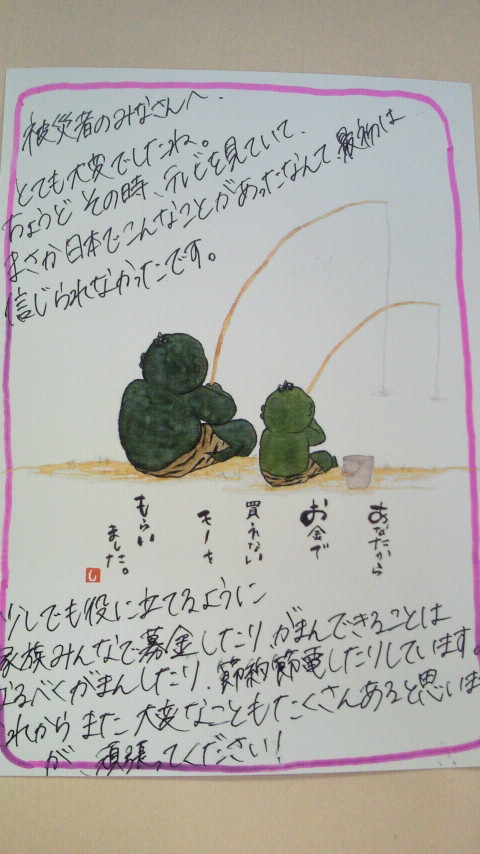 被災者のみなさんへ.
とても大変でしたね。
ちょうど その時、テレビを見ていて、
まさか日本でこんなことがあったなんて、最初は
信じられなかったです。
あなたから
お金で
買えない
モノを
もらい
ました。
少しでも役に立てるように
家族みんなで募金したり がまんできることは
なるべくがまんしたり、節約節電したりしています。
これから また 大変なこともたくさんあると思いま
が、頑張ってください!